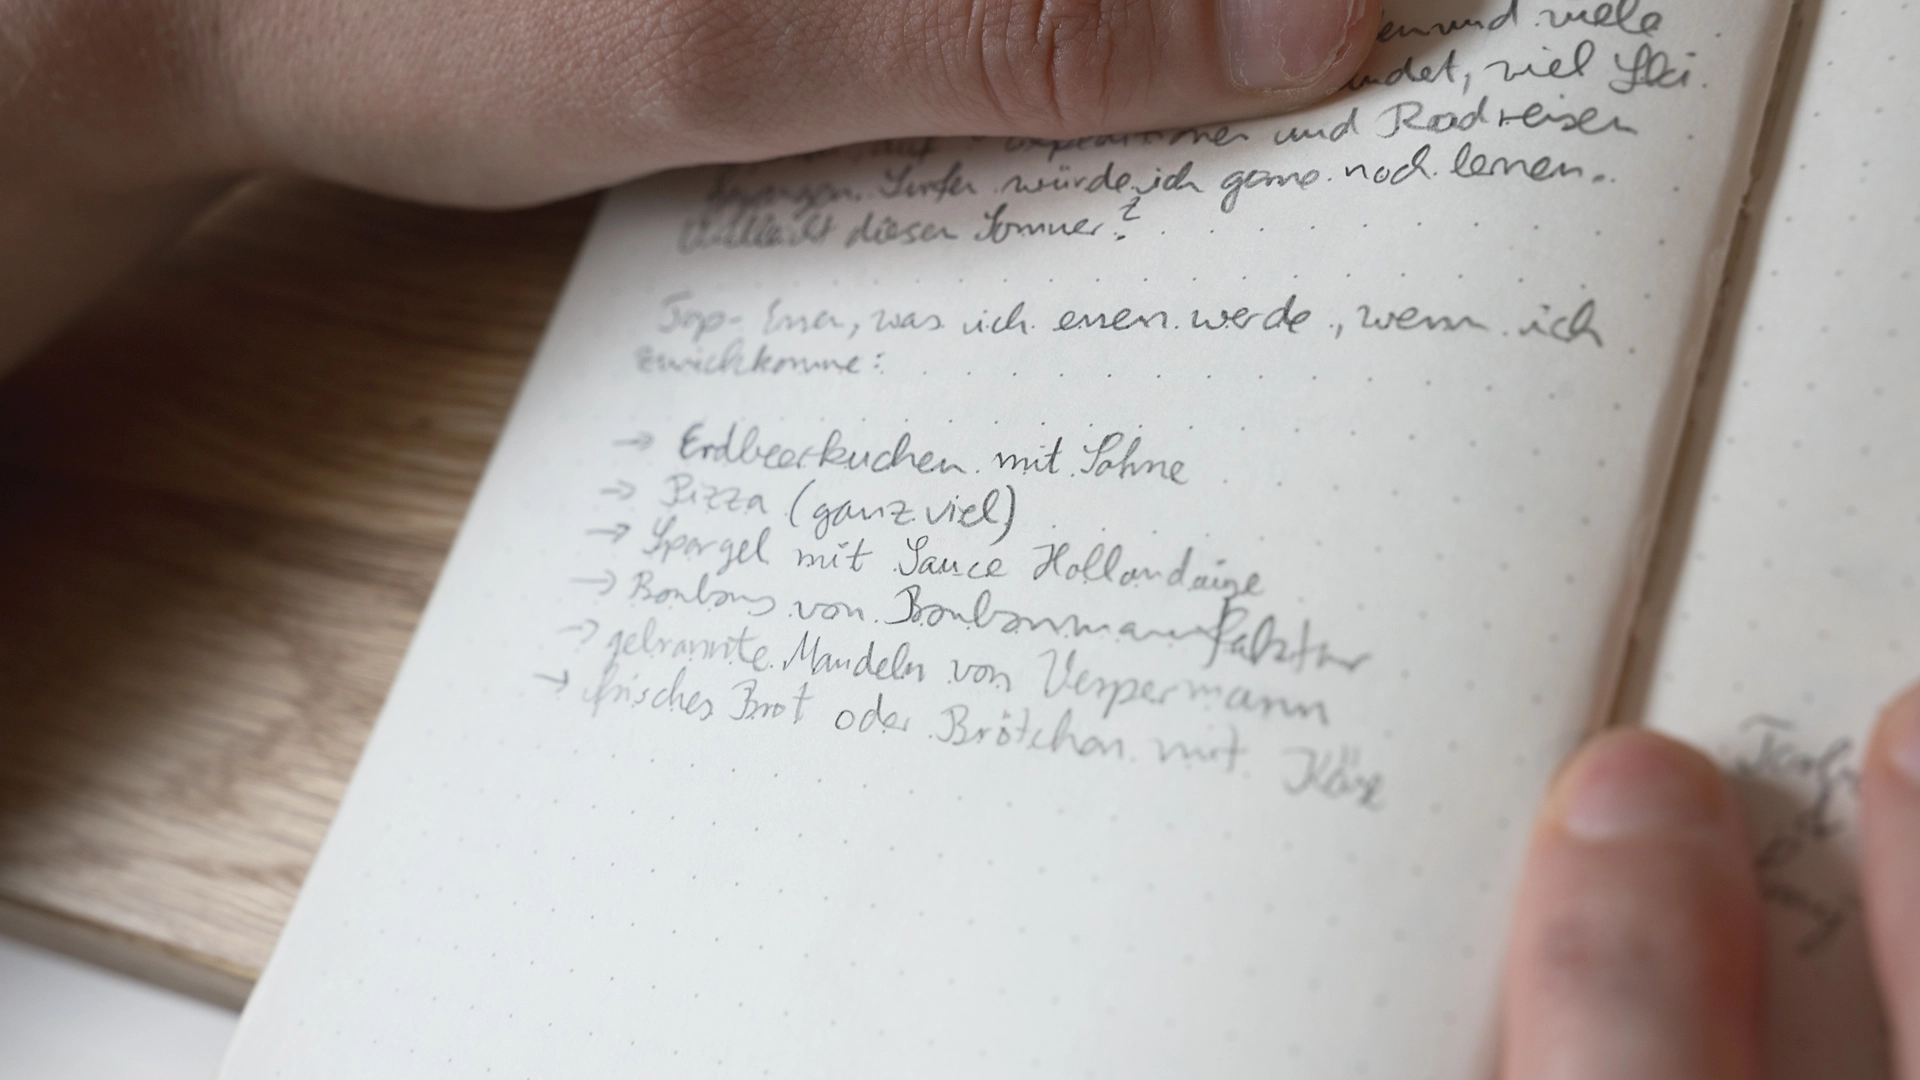 und viele
viel Ski
und Radreisen
gegangen. Surfen würde ich gerne noch lernen.
Vielleicht diesen Sommer?
Top-Essen, was ich essen werde, wenn ich
zurückkomme:
→ Erdbeerkuchen mit Sahne
→ Pizza (ganz viel)
→ Spargel mit Sauce Hollandaise
→ Bonbons von Bonbonmanufaktur
→ gebrannte Mandeln von Vespermann
→ frisches Brot oder Brötchen mit Käse